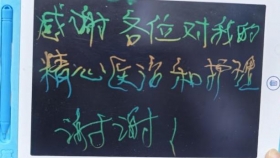 感谢各位对我的
精心医治和护理
谢谢！